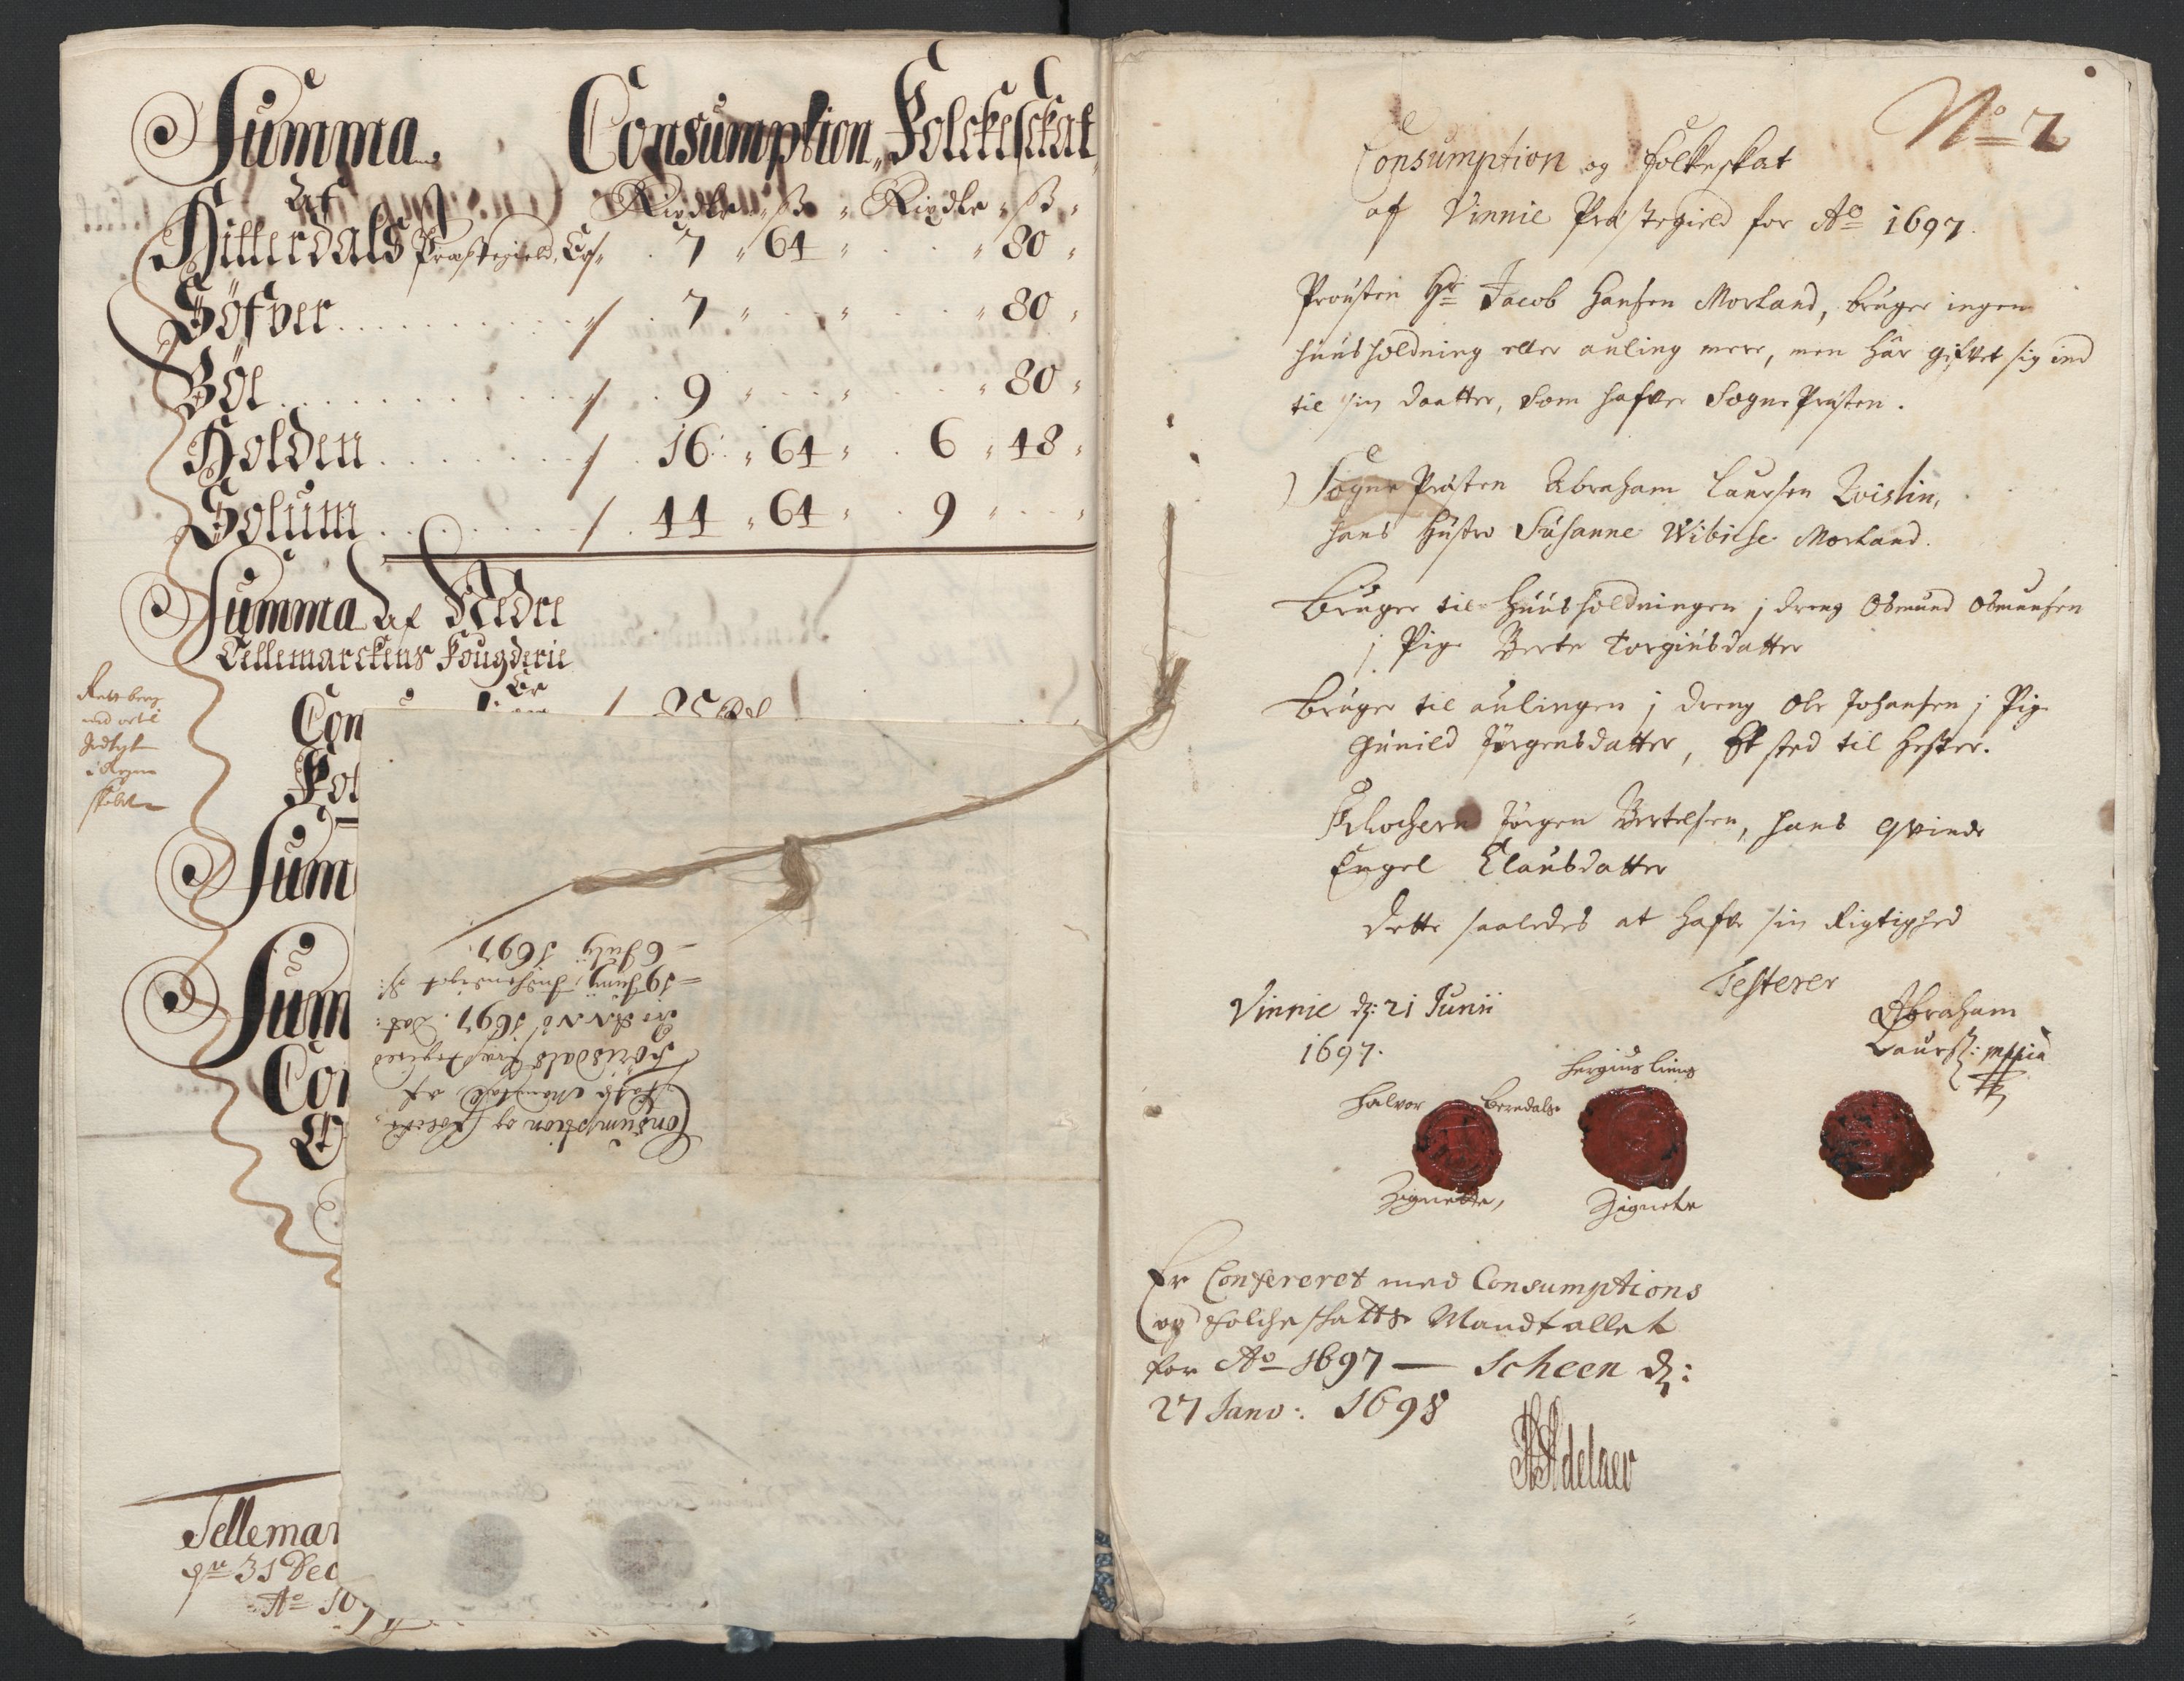 Summa. Consumption, Folckeskat
Af Rixdlr ß Rixdlr ß
Hitterdals Præstegield, Er 7 64 80
Böfver 7 80
Böe 9 80
Holden 16 64 6 48
Solum 44 64 9
Summa af Nedre
Tellemarckens Fougderie
Er
Con
Fol
Sum
Sum
Con
Tellemar
31 Dec
Ao
Consumption og Folcke
Skatts Mandtall af
Præstegield
pro Anno 1697. Dat:
19 Junij
6 July 1697.
No 7
Consumption og Folkeskat
af Vinnie Præstegield for Ao 1697.
Prousten Hr Jacob Hansen Morland, bruger ingen
huusholdning eller auling mere, men har gifvet sig ind
til sin daatter, som hafver Sogne Præsten.
Sogne Præsten Abraham Laursen Qvislin,
hans Hustro Susanne Wibikse Morland.
Bruger til Huusholdningen j dreng Osmund Osmunsen
j Pige Berte Torgiusdatter
Bruger til aulingen j dreng Ole Johansen j Pige
Gunild Jörgensdatter, Et sted til Hester.
Klockeren Jörgen Bertelsen, hans Qvinde
Engel Clausdatter
Dette saaledes at hafve sin Rigtighed
Testerer
Vinnie d: 21 Junii
1697.
Abraham
Laurs: mppia
Halvor Beredals
Zignette,
Zignete
Er Confereret med Consumptions
og Folche skatts Mandtallet
for Ao 1697 — Scheen d:
27 Janv: 1698
HAdelaer